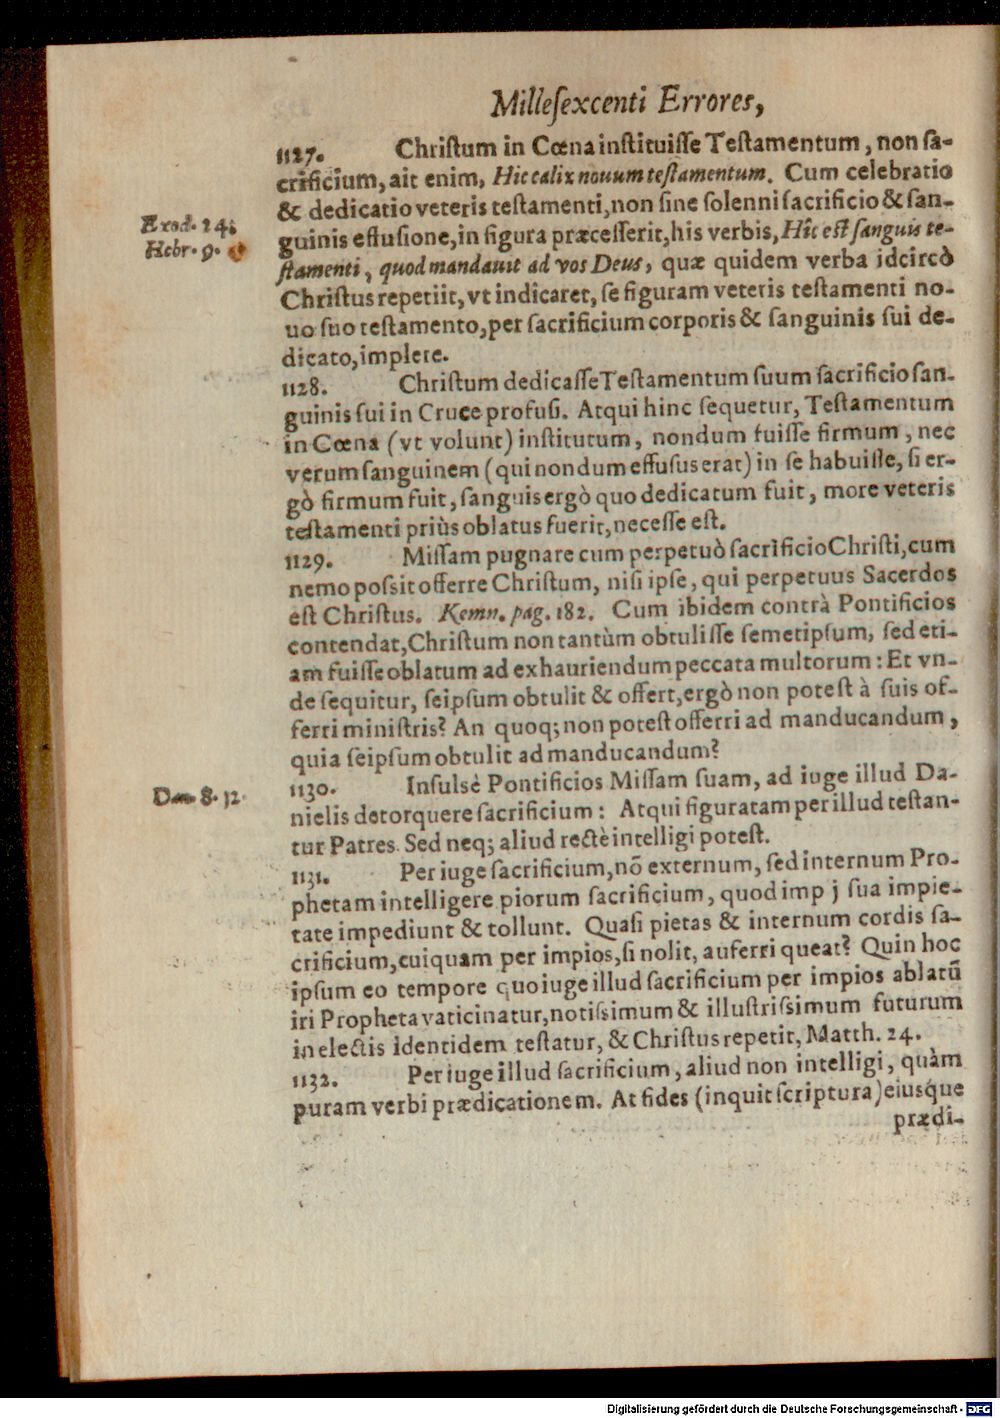 Milleſexcenti Errores,
1127. Chriſtum in Cœna inſtituiſſe Teſtamentum, non ſa-
crificium, ait enim, Hic calix nouum teſtamentum. Cum celebratio
& dedicatio veteris teſtamenti, non ſine ſolenni ſacrificio & ſan-
Exod. 24.
guinis effuſione, in figura præceſſerit, his verbis, Hîc eſt ſanguis te-
Hebr. 9.
ſtamenti, quod mandauit ad vos Deus, quæ quidem verba idcircò
Chriſtus repetiit, vt indicaret, ſe figuram veteris teſtamenti no-
uo ſuo teſtamento, per ſacrificium corporis & ſanguinis ſui de-
dicato, implere.
1128. Chriſtum dedicaſſe Teſtamentum ſuum ſacrificio ſan-
guinis ſui in Cruce profuſi. Atqui hinc ſequetur, Teſtamentum
in Cœna (vt volunt) inſtitutum, nondum fuiſſe firmum, nec
verum ſanguinem (qui nondum effuſus erat) in ſe habuiſſe, ſi er-
gò firmum fuit, ſanguis ergò quo dedicatum fuit, more veteris
teſtamenti priùs oblatus fuerit, neceſſe eſt.
1129. Miſſam pugnare cum perpetuò ſacrificio Chriſti, cum
nemo poſsit offerre Chriſtum, niſi ipſe, qui perpetuus Sacerdos
eſt Chriſtus. Kemn. pag. 182. Cum ibidem contrà Pontificios
contendat, Chriſtum non tantùm obtuliſſe ſemetipſum, ſed eti-
am fuiſſe oblatum ad exhauriendum peccata multorum: Et vn-
de ſequitur, ſeipſum obtulit & offert, ergò non poteſt à ſuis of-
ferri miniſtris? An quoq; non poteſt offerri ad manducandum,
quia ſeipſum obtulit ad manducandum?
Dan. 8. 12
1130. Inſulsè Pontificios Miſſam ſuam, ad iuge illud Da-
nielis detorquere ſacrificium: Atqui figuratam per illud teſtan-
tur Patres. Sed neq; aliud rectè intelligi poteſt.
1131. Per iuge ſacrificium, nõ externum, ſed internum Pro-
phetam intelligere piorum ſacrificium, quod imp j ſua impie-
tate impediunt & tollunt. Quaſi pietas & internum cordis ſa-
crificium, cuiquam per impios, ſi nolit, auferri queat? Quin hoc
ipſum eo tempore quo iuge illud ſacrificium per impios ablatũ
iri Propheta vaticinatur, notiſsimum & illuſtriſsimum futurum
in electis identidem teſtatur, & Chriſtus repetit, Matth. 24.
1132. Per iuge illud ſacrificium, aliud non intelligi, quàm
puram verbi prædicationem. At fides (inquit ſcriptura) eiusq́ue
prædi-
Digitalisierung gefördert durch die Deutsche Forschungsgemeinschaft - DFG